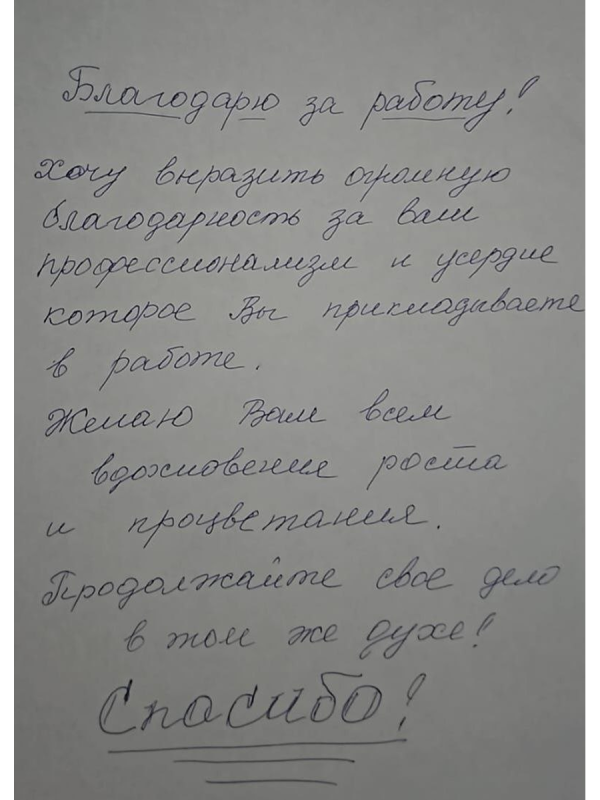 Благодарю за работу!
Хочу выразить огромную
благодарность за ваш
профессионализм и усердие
которое Вы прикладываете
в работе.
Желаю Вам всем
вдохновения роста
и процветания.
Продолжайте свое дело
в том же духе!
Спасибо!